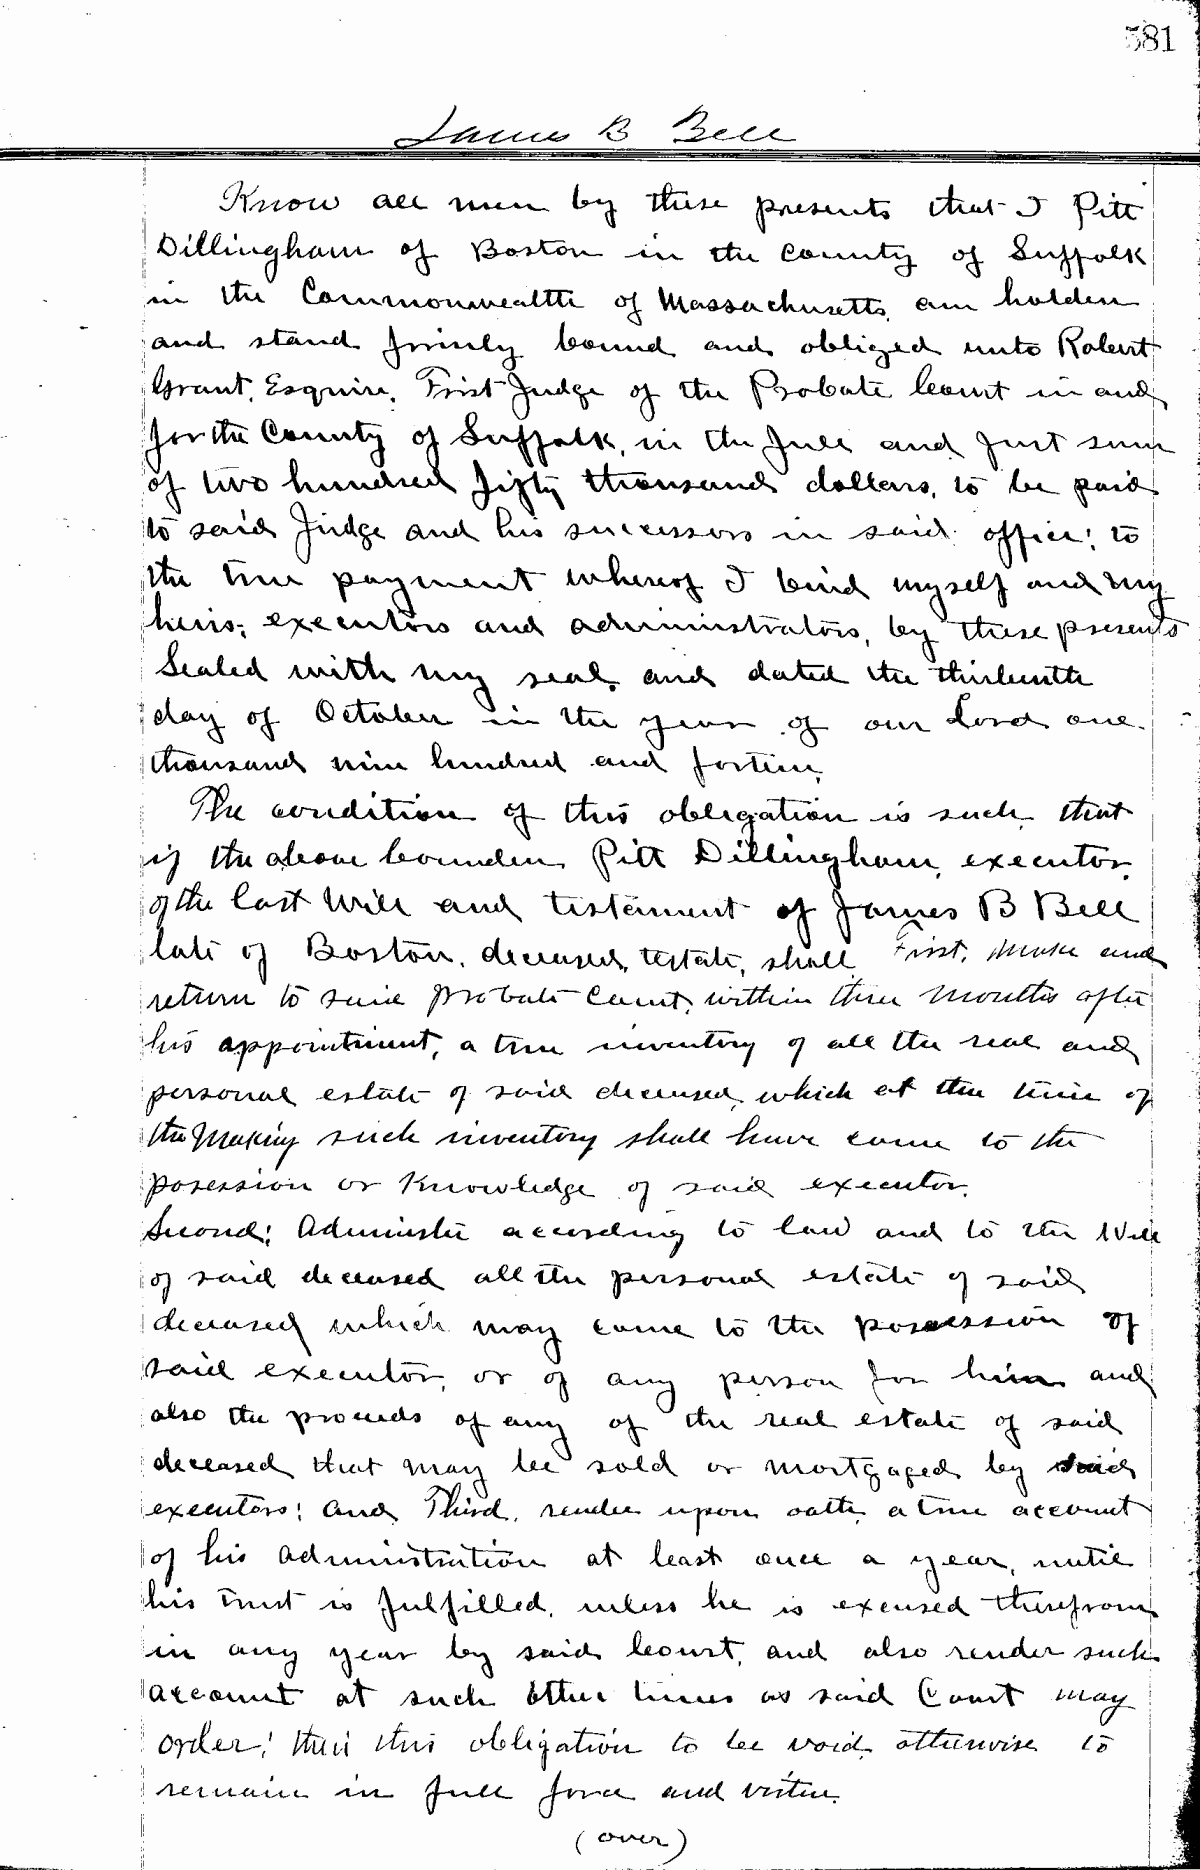 581
James B Bell
Know all men by these presents that I Pitt
Dillingham of Boston in the County of Suffolk
in the Commonwealth of Massachusetts, am holden
and stand firmly bound and obliged unto Robert
Grant, Esquire, First Judge of the Probate Court in and
for the County of Suffolk, in the full and just sum
of two hundred fifty thousand dollars, to be paid
to said Judge and his successors in said office; to
the true payment whereof I bind myself and my
heirs, executors and administrators, by these presents
Sealed with my seal, and dated the thirteenth
day of October in the year of our Lord one
thousand nine hundred and fortune,
The condition of this obligation is such, that
if the above bounden Pitt Dillingham, executor,
of the last Will and testament of James B Bell
late of Boston, deceased, testate, shall First, make and
return to said Probate Court, within three months after
his appointment, a true inventory of all the real and
personal estate of said deceased, which at the time of
the making such inventory shall have come to the
posession or knowledge of said executor,
Second; Administer according to law and to the Will
of said deceased all the personal estate of said
deceased which may come to the possession of
said executor, or of any person for him and
also the proceeds of any of the real estate of said
deceased that may be sold or mortgaged by said
executors; and Third, render upon oath, a true account
of his administration at least once a year, until
his trust is fulfilled, unless he is excused therefrom
in any year by said Court, and also render such
account at such other times as said Court may
order; then this obligation to be void, otherwise to
remain in full force and virtue.
(over)